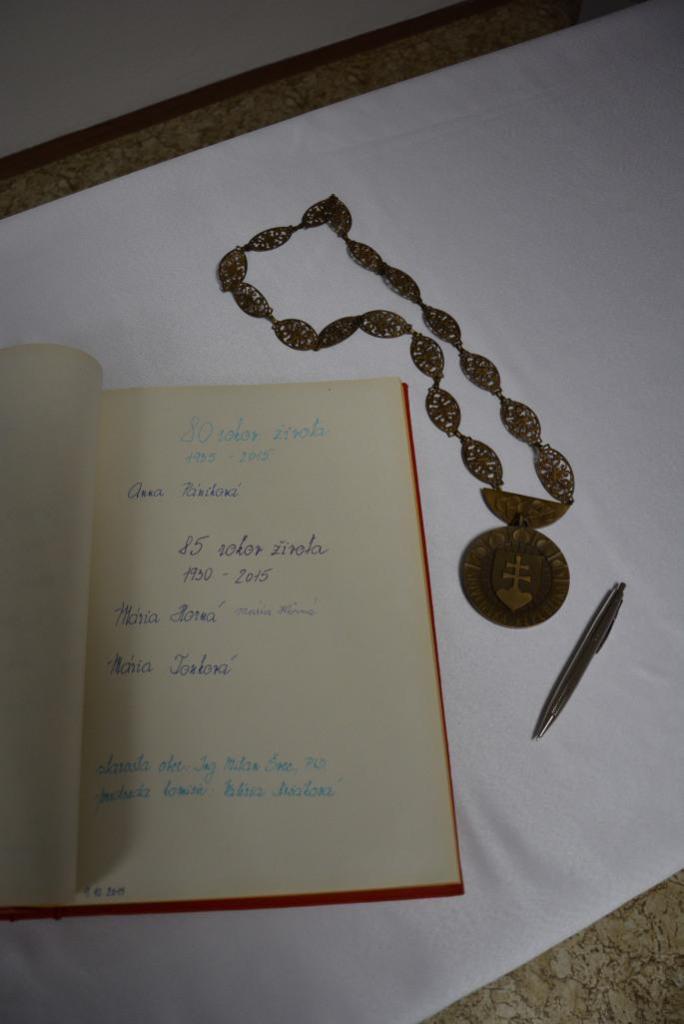 80 rokov života
1935 - 2015
Anna
85 rokov života
1930 - 2015
Mária Horná Mária Horná
Mária Tonková
starosta obce: Ing Milan Švec, PhD.
predseda komisie: Valéria
9.10.2015